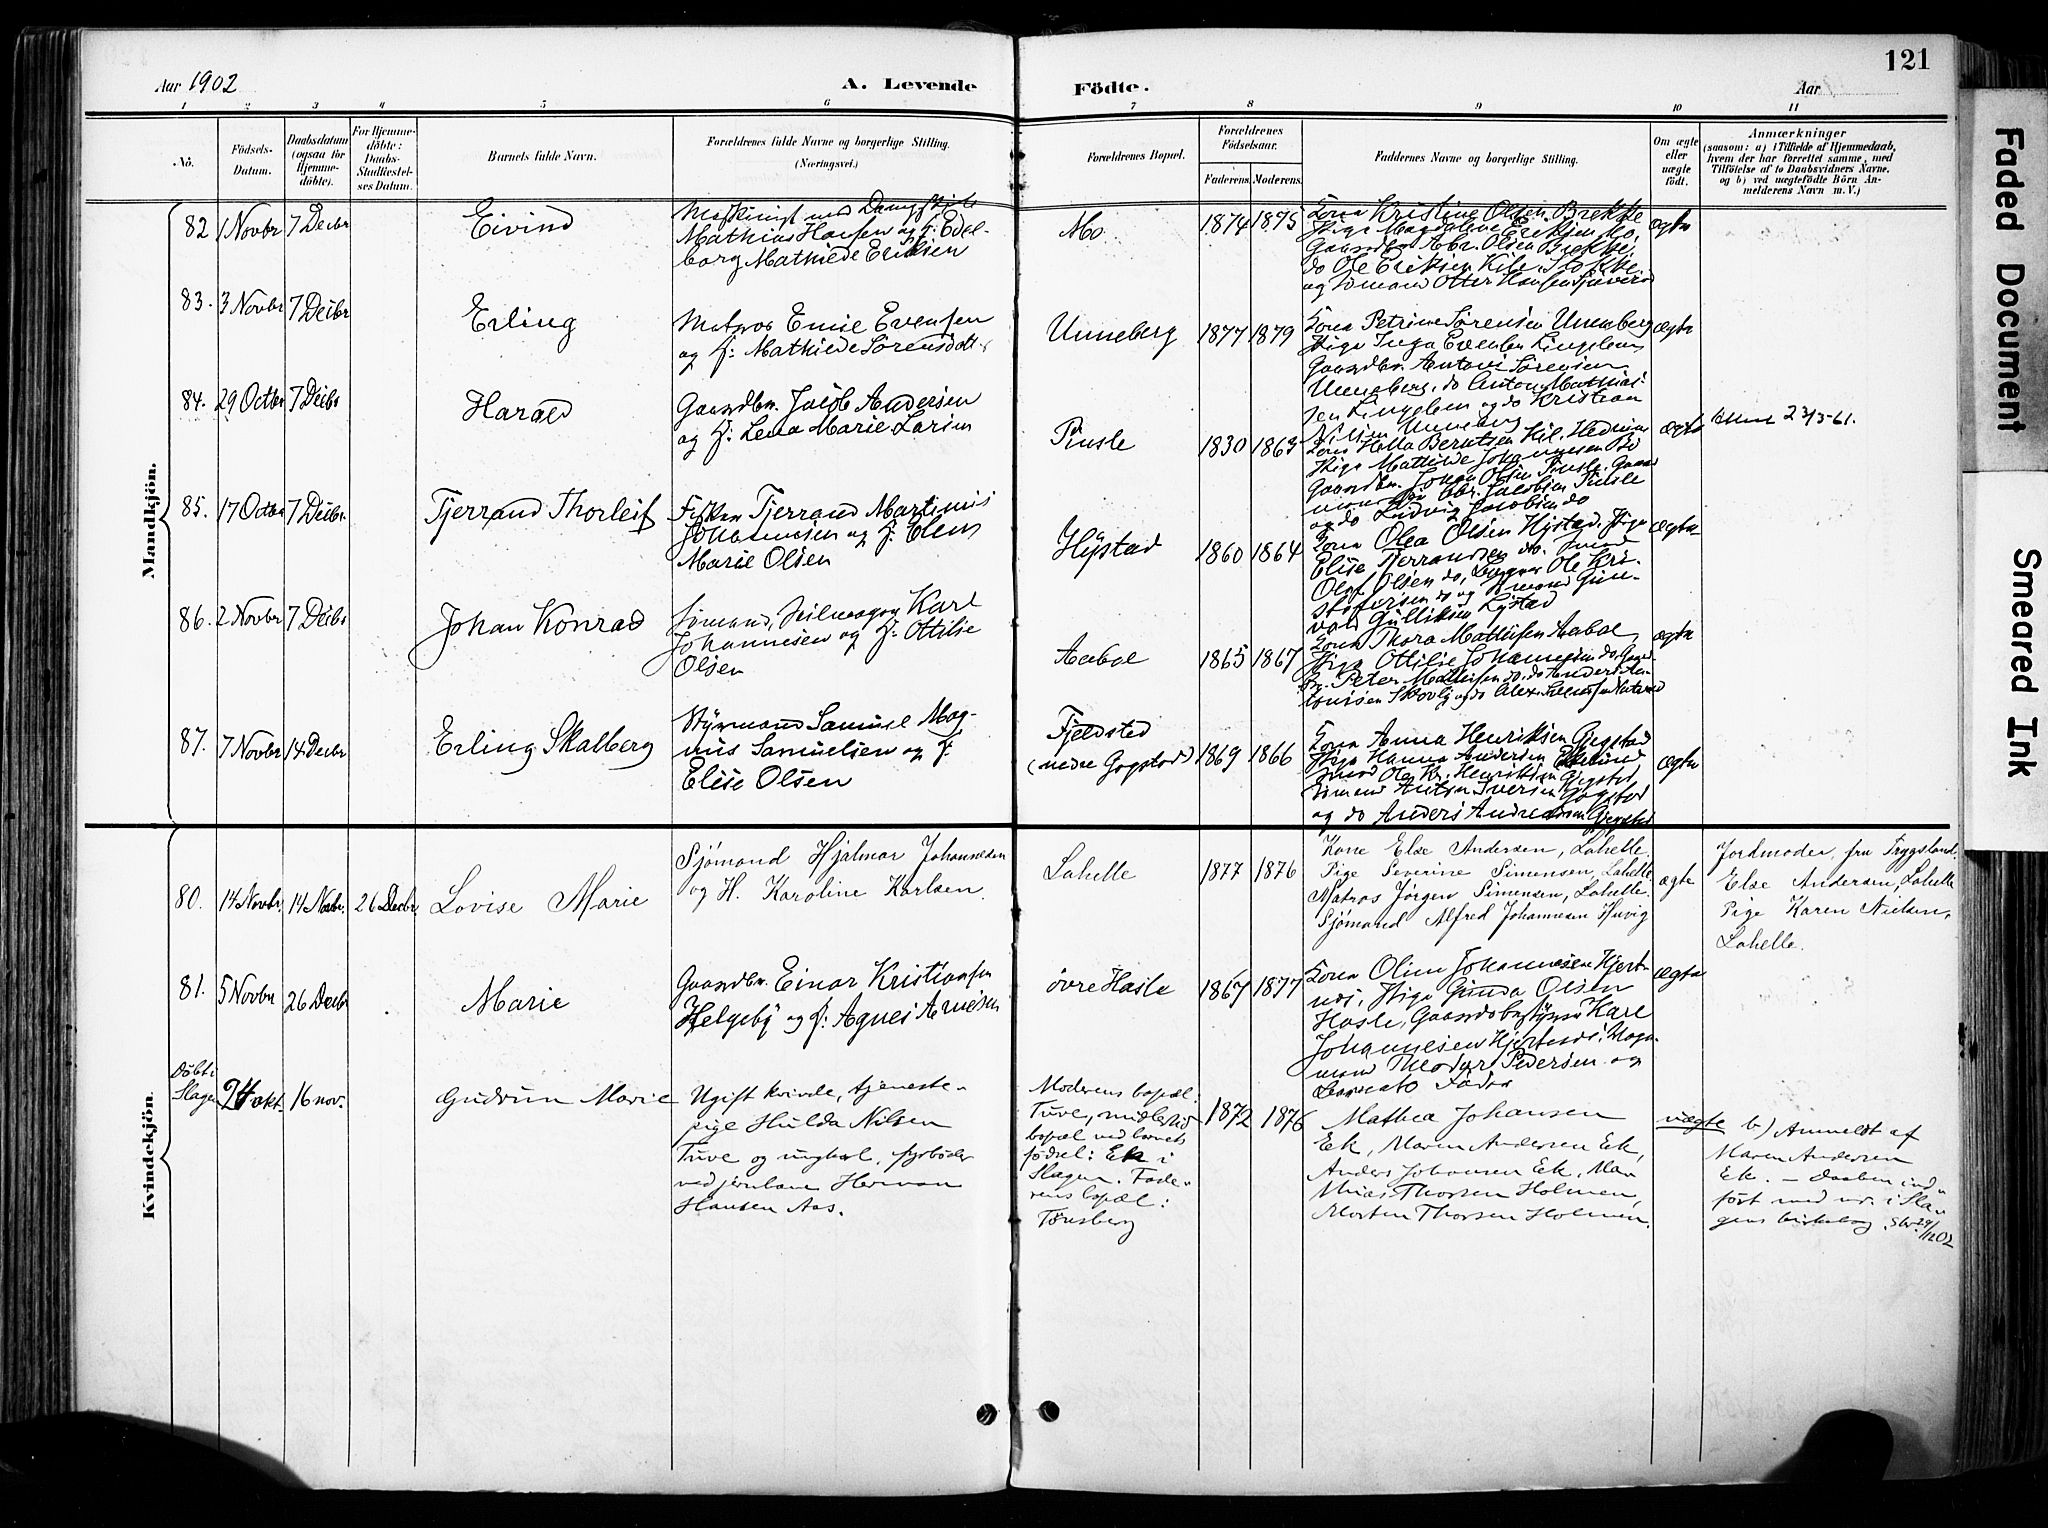 121
Aar 1902
A. Levende
Födte.
Aar
1 2 3 4 5 6 7 8 9 10 11
No.
Födsels-
Datum.
Daabsdatum
(ogsaa for
Hjemme-
döbte).
For Hjemme-
döbte:
Daabs-
Stadfæstel-
ses Datum.
Barnets fulde Navn.
Forældrenes fulde Navne og borgerlige Stilling.
(Næringsvei.)
Forældrenes Bopæl.
Forældrenes
Födselsaar.
Faderens. Moderens.
Faddernes Navne og borgerlige Stilling.
Om ægte
eller
uægte
födt.
Anmærkninger
(saasom: a) i Tilfælde af Hjemmedaab,
hvem der har forrettet samme, med
Tilföielse af to Daabsvidners Navne.
og b) ved uægtefödte Börn An-
melderens Navn m. V.)
Mandkjön.
82 1 Novbr 7 Decbr
Eivind
Mathias Hansen og H. Edel-
borg Mathilde Eriksen
Mo
1874 1875
Kona Kristine Olsen Brekke
Pige Magdalene Eriksen Mo,
Gaardbr. Abr. Olsen Brekke,
do Ole Eriksen
og Sömand Otter Hansen
ægte
83. 3 Novbr 7 Decbr
Erling
Matros Emil Evensen
og H. Mathilde Sörensdatter
Unneberg
1877 1879
Kona Petrine Sörensen Unneberg
Pige Inga Evensen Lingelem
Gaardbr. Anton Sörensen
Unneberg, do Anton Mathis-
sen Lingelem og do Kristian
Nilsen Unneberg
ægte
84. 29 Octbr 7 Decbr
Harald
Gaardbr. Jacob Andersen
og H. Lena Marie Larsen
Pindsle
1830 1863
Kona Hella Berntsen
Pige Mathilde Johannesen Bo
Gaardbr. Johan Olsen Pindsle, Gaard
Abr. Jacobsen Pindsle
og do Ludvig Jacobsen do
ægte
23/3-61.
85. 17 Octbr 7 Decbr
Tjerrand Thorleif
Fisker Tjerrand Martinus
Johannesen og H. Elen
Marie Olsen
Hystad
1860 1864
Kona Olea Olsen Hystad, Pige
Elise Tjerrandsen do.
Olaf Olsen do, Ole Kri-
stofersen do og Sömand Gun-
vald Gulliksen Hystad
ægte
86. 2 Novbr 7 Decbr
Johan Konrad
Sömand, Seilmager Karl
Johannesen og H. Ottilie
Olsen
Aabol
1865 1867
Kona Thora Mathisen Aabol
Pige Ottilie Johannesen do, Gaard-
br. Peter Mathisen do, do Anders An-
tonisen Skovly og do
ægte
87. 7 Novbr 14 Decbr
Erling Skalberg
Styrmand Samuel Mag-
nus Samuelsen og H.
Elise Olsen
Fjeldstad
(nedre Gogstad)
1869 1866
Kona Anna Henriksen Gjegstad
Pige Hanna Andersen
Smed Ole Kr. Henriksen Gjegstad,
Sömand Anton Iversen Gogstad
og do Anders Andreasen Gjegstad
ægte
Kvindekjön.
80. 14 Novbr. 14 Novbr. 26 Decbr.
Lovise Marie
Sjömand Hjalmar Johannesen
og H. Karoline Karlsen
Lahelle
1877 1876
Kone Else Andersen, Lahelle
Pige Severine Simensen, Lahelle
Matros Jörgen Simensen, Lahelle.
Sjömand Alfred Johannesen Huvig
ægte
Jordmoder, fru Trygsland.
Else Andersen, Lahelle
Pige Karen Nielsen,
Lahelle.
81. 5 Novbr 26 Decbr
Marie
Gaardbr. Einar Kristiansen
Helgeby og H. Agnes Arnesen
övre Hasle
1867 1877
Kona Oline Johannesen Hjert-
nes, Pige Gunda Olsen
Hasle, Gaardsbestyrer Karl
Johannesen Hjertnes, Vogn-
mand Theodor Pedersen og
Barnets Fader
ægte
Döbt i
Slagen
24 okt. 16 nov.
Gudrun Marie
Ugift kvinde, tjeneste-
pige Hulda Nilsen
Tuve og ungkarl, fyrböder
ved jernbane Herman
Hansen Aas.
Moderens bopæl:
Tuve, midlertid
bopæl ved barnets
födsel: Ek i
Slagen. Fade-
rens bopæl:
Tönsberg
1872 1876
Mathea Johansen
Ek, Maren Andersen Ek,
Anders Johansen Ek, Mat-
hias Thorsen Holmen,
Morten Thorsen Holmen.
uægte
b) Anmeldt af
Maren Andersen
Ek. – Daaben ind-
fört med nr. i Sla-
gens kirkebog. 29/12 02
Faded Document Smeared Ink